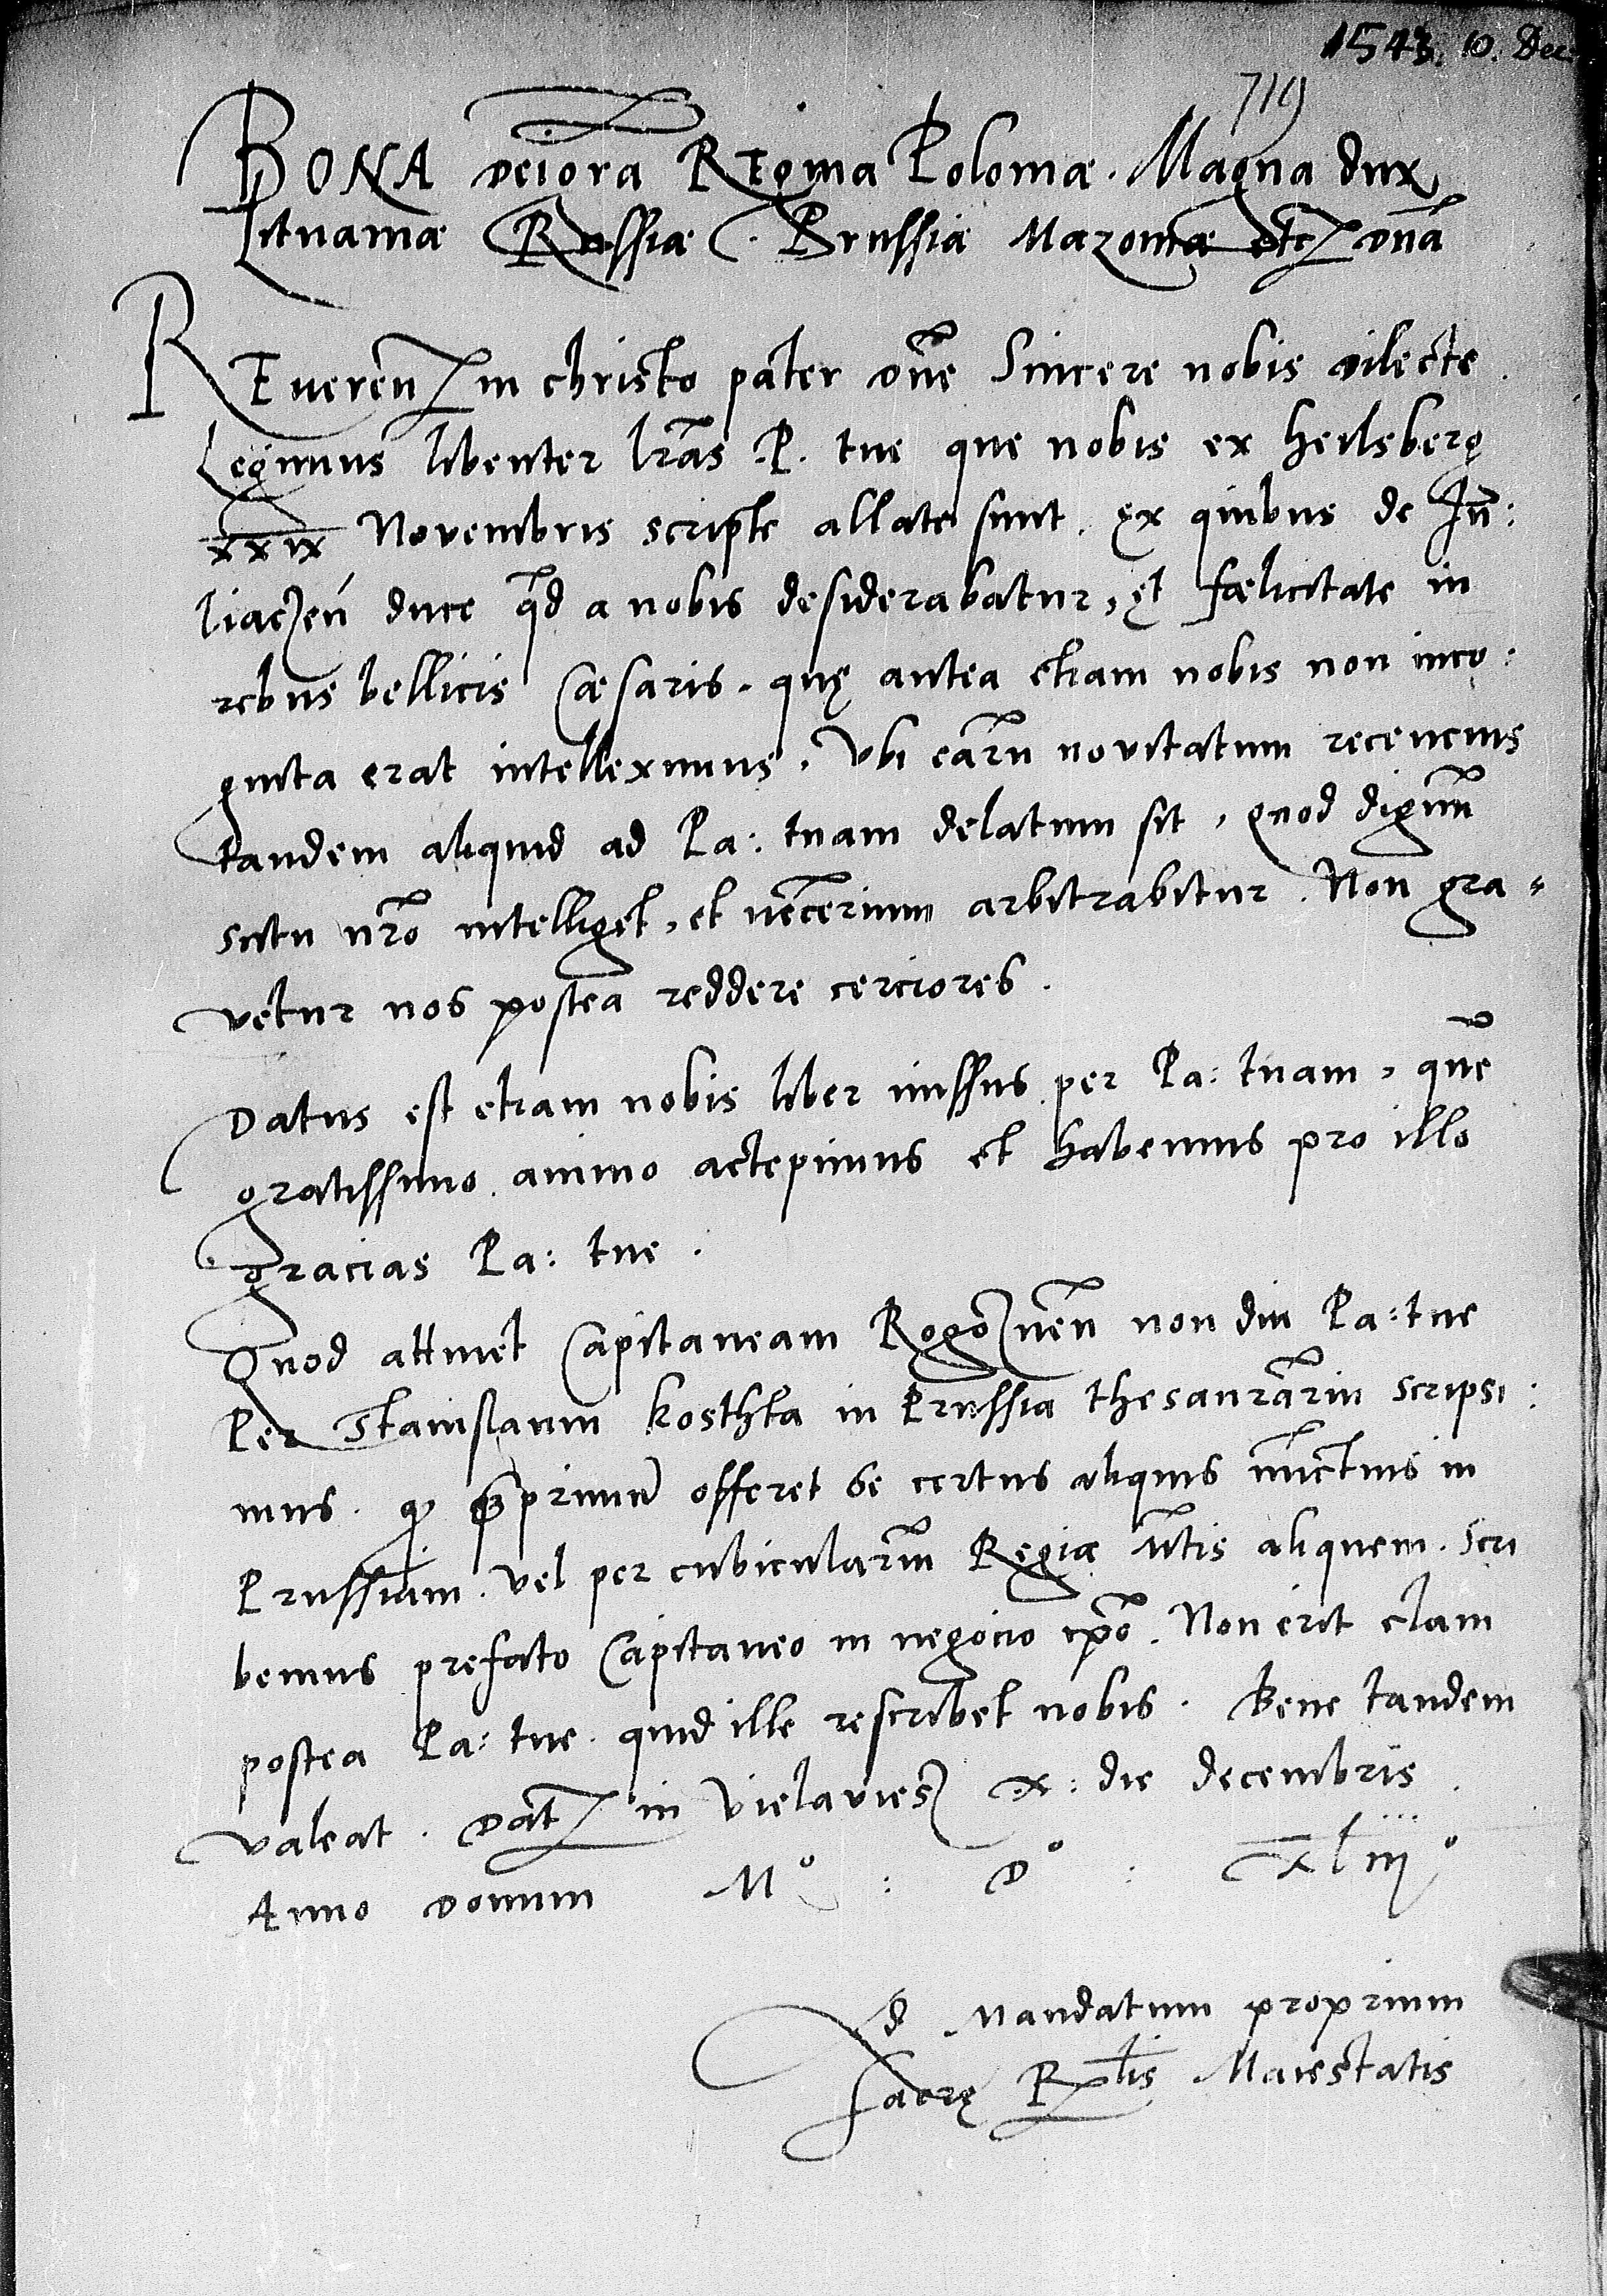 1543. 10. Dec.
719
BONA dei gra Regina Poloniæ. Magna dux
Lituaniæ Russiæ. Prussiæ Mazoviæ etc dna
REveren in christo pater dne Sincere nobis dilecte.
Legimus libenter lras P. tue que nobis ex heilsberg
xxix Novembris scripte allate sunt. ex quibus de Iu:
liaczen duce qd a nobis desiderabatur, et fælicitate in
rebus bellicis Cæsaris. quę antea etiam nobis non inco:
gnita erat intelleximus. Ubi earu novitatum recencius
tandem aliquid ad Pa: tuam delatum sit, quod dignu
scitu nro intelliget, et necerium arbitrabitur. Non gra=
vetur nos postea reddere cerciores.
Datus est etiam nobis liber missus per Pa: tuam, que
gratissimo animo accepimus et habemus pro illo
gracias Pa: tue.
Quod attinet Capitaneam Rogoznen non diu Pa: tue
Per Stanislaum kosthka in Prussia thesaurariu scripsi:
mus. q qprimum offeret se certus aliquis nuctius in
Prussiam. vel per cubicularium Regiæ Mtis aliquem. scri
bemus prefato Capitaneo in negocio ipso. Non erit clam
postea Pa: tue. quid ille rescribet nobis. Bene tandem
valeat. Dat in Vielavies x: die decembris.
Anno domini M° : D° : xliii°
Ad Mandatum proprium
sacrę Rlis Maiestatis